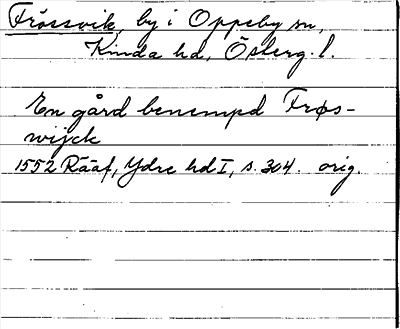 Frössvik, by i Oppeby sn,
Kinda hd, Österg. l.
En gård benempd Frøs-
wijck
1552 Rääf, Ydre hd I, s. 304. orig.